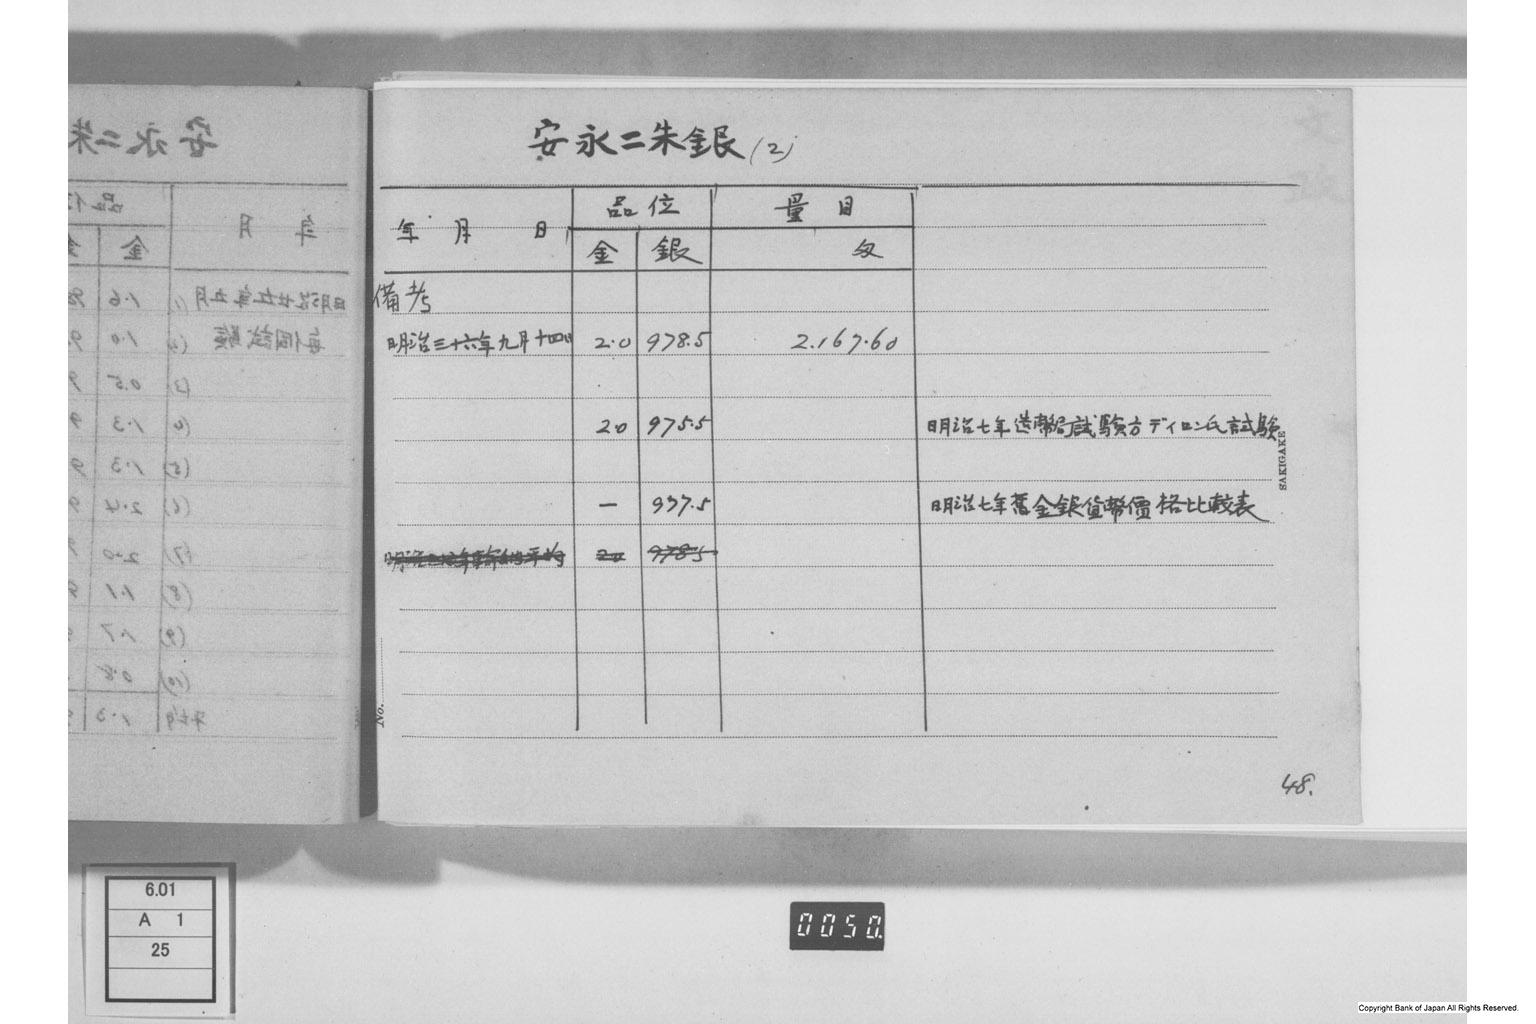 安永二朱銀(2)
年 月 日 品位 量目
金 銀 匁
備考
明治三十六年九月十四日 2.0 978.5 2.167.60
2.0 975.5 明治七年造幣局試験方ディロン氏試験
— 937.5 明治七年舊金銀貨幣價格比較表
20 978.5
SAKIGAKE
No.
48.
安永二朱
年 月 品位
金
明治廿五年五月 (1) 1.6
毎個試験 (2) 1.0
(3) 0.5
(4) 1.3
(5) 1.3
(6) 2.4
(7) 2.0
(8) 1.1
(9) 1.7
(10) 0.8
平均 1.3
6.01
A 1
25
0050.
Copyright Bank of Japan All Rights Reserved.